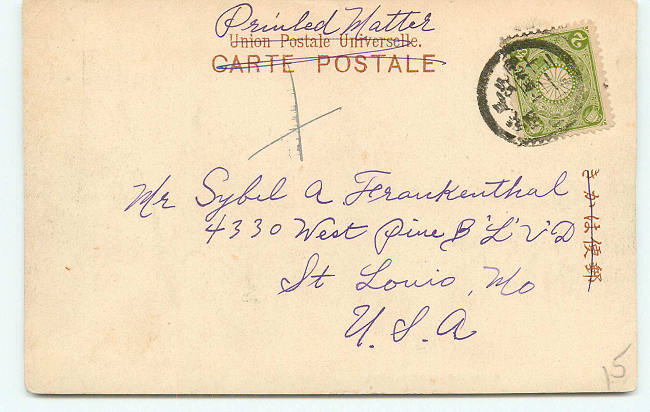 Printed Matter
Union Postale Universelle.
CARTE POSTALE
2
Mr Sybel A Frankenthal
4330 West Pine B'L'V'D
St Louis, Mo
U. S. A
きかは便郵
15